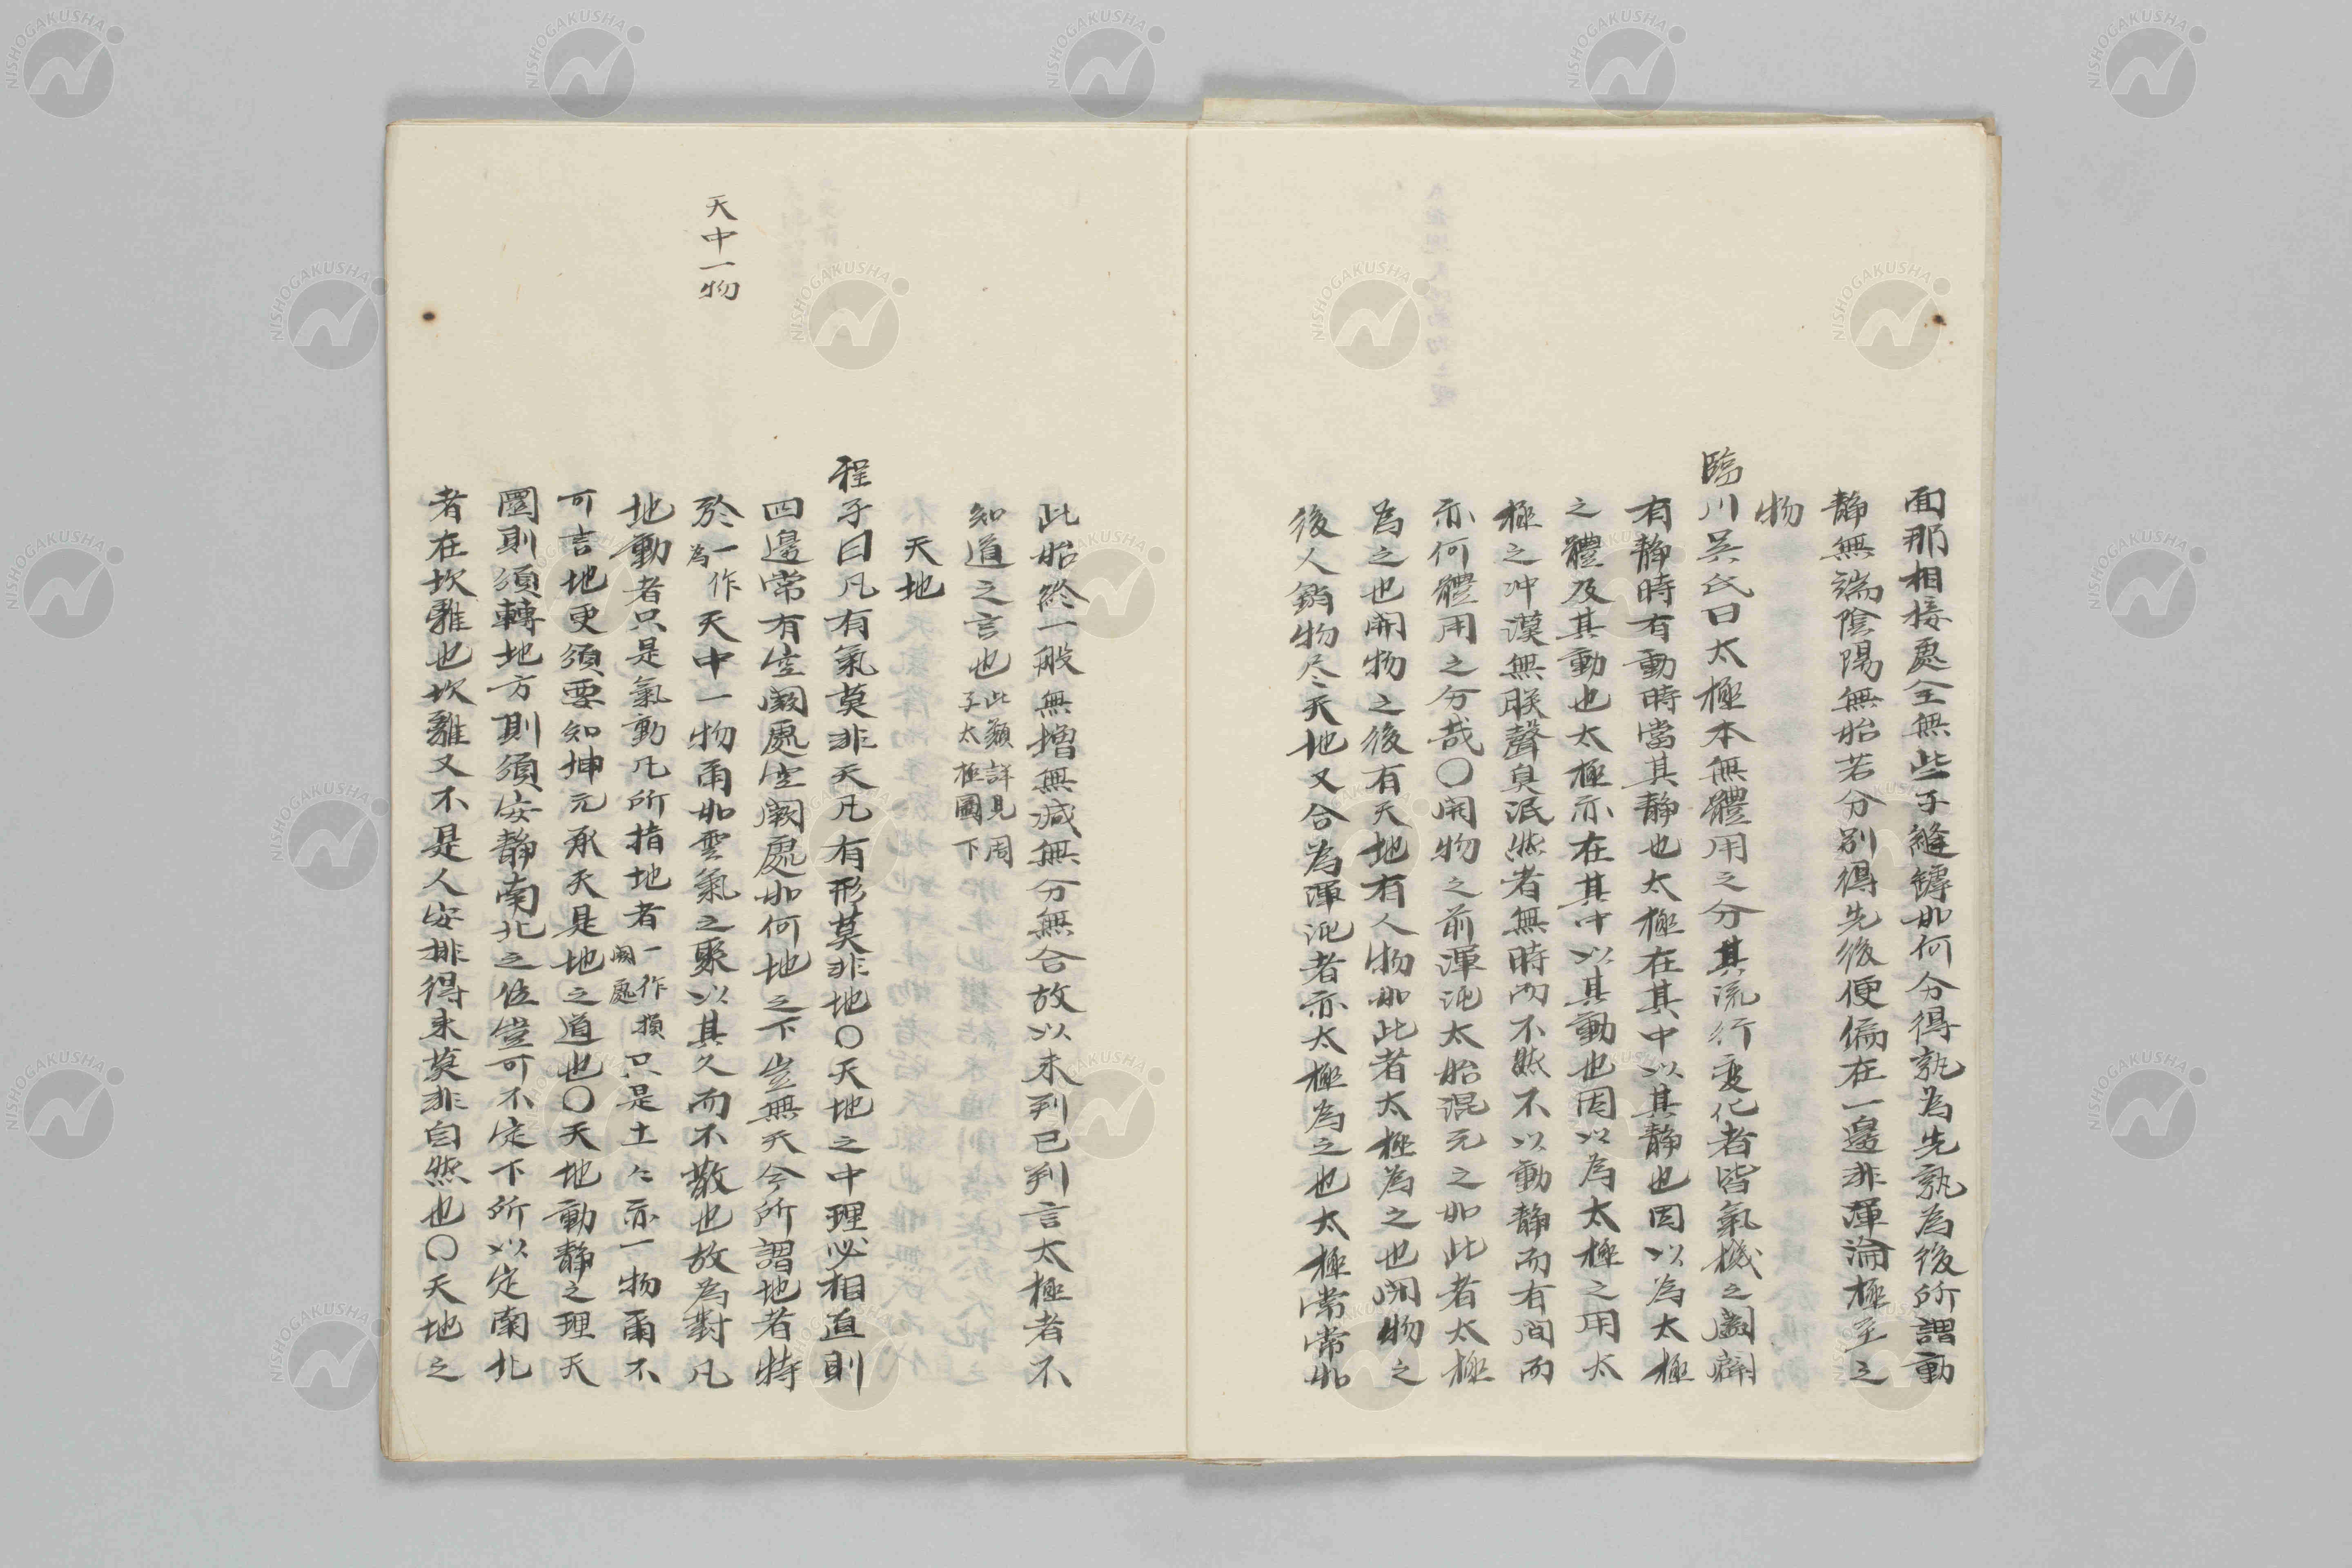 面那相接處全無些子縫罅如何分得孰為先孰為後所謂動
静無端陰陽無始若分別得先後便偏在一邊非渾淪極至之
物
臨川吳氏曰太極本無體用之分其流行変化者皆氣機之闔闢
有静時有動時當其静也太極在其中以其静也因以為太極
之體及其動也太極亦在其中以其動也因以為太極之用太
極之冲漠無朕聲臭泯然者無時而不然不以動静而有間而
亦何體用之分哉〇開物之前渾沌太始混元之如此者太極
為之也開物之後有天地有人物如此者太極為之也閉物之
後人銷物尽天地又合為渾沌者亦太極為之也太極常常如
此始終一般無増無減無分無合故以未判已判言太極者不
知道之言也此類詳見周子太極圖下
天地
程子曰凡有氣莫非天凡有形莫非地〇天地之中理必相直則
四邊常有空闕處空闕處如何地之下豈無天今所謂地者特
天中一物
於一作為天中一物爾如雲氣之聚以其久而不散也故為對凡
地動者只是氣動凡所指地者一作損闕處只是土々亦一物爾不
可言地更須要知坤元承天是地之道也〇天地動静之理天
圜則須轉地方則須安静南北之位豈可不定下所以定南北
者在坎離也坎離又不是人安排得来莫非自然也〇天地之
NISHOGAKUSHA